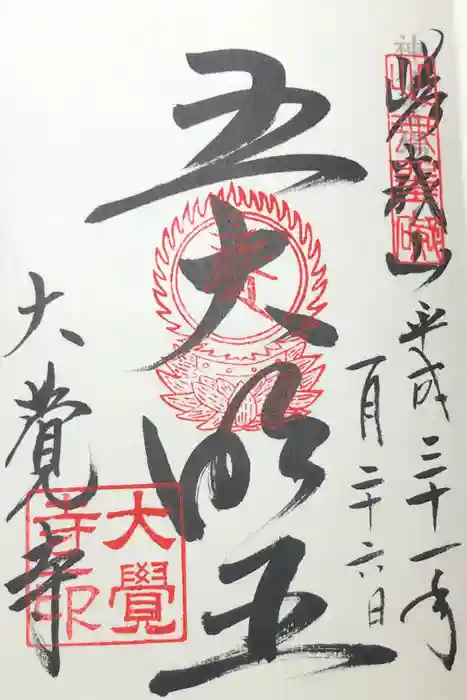 嵯峨山
平成三十一年
一月二十六日
五大明王
大覚寺
大覺
寺印